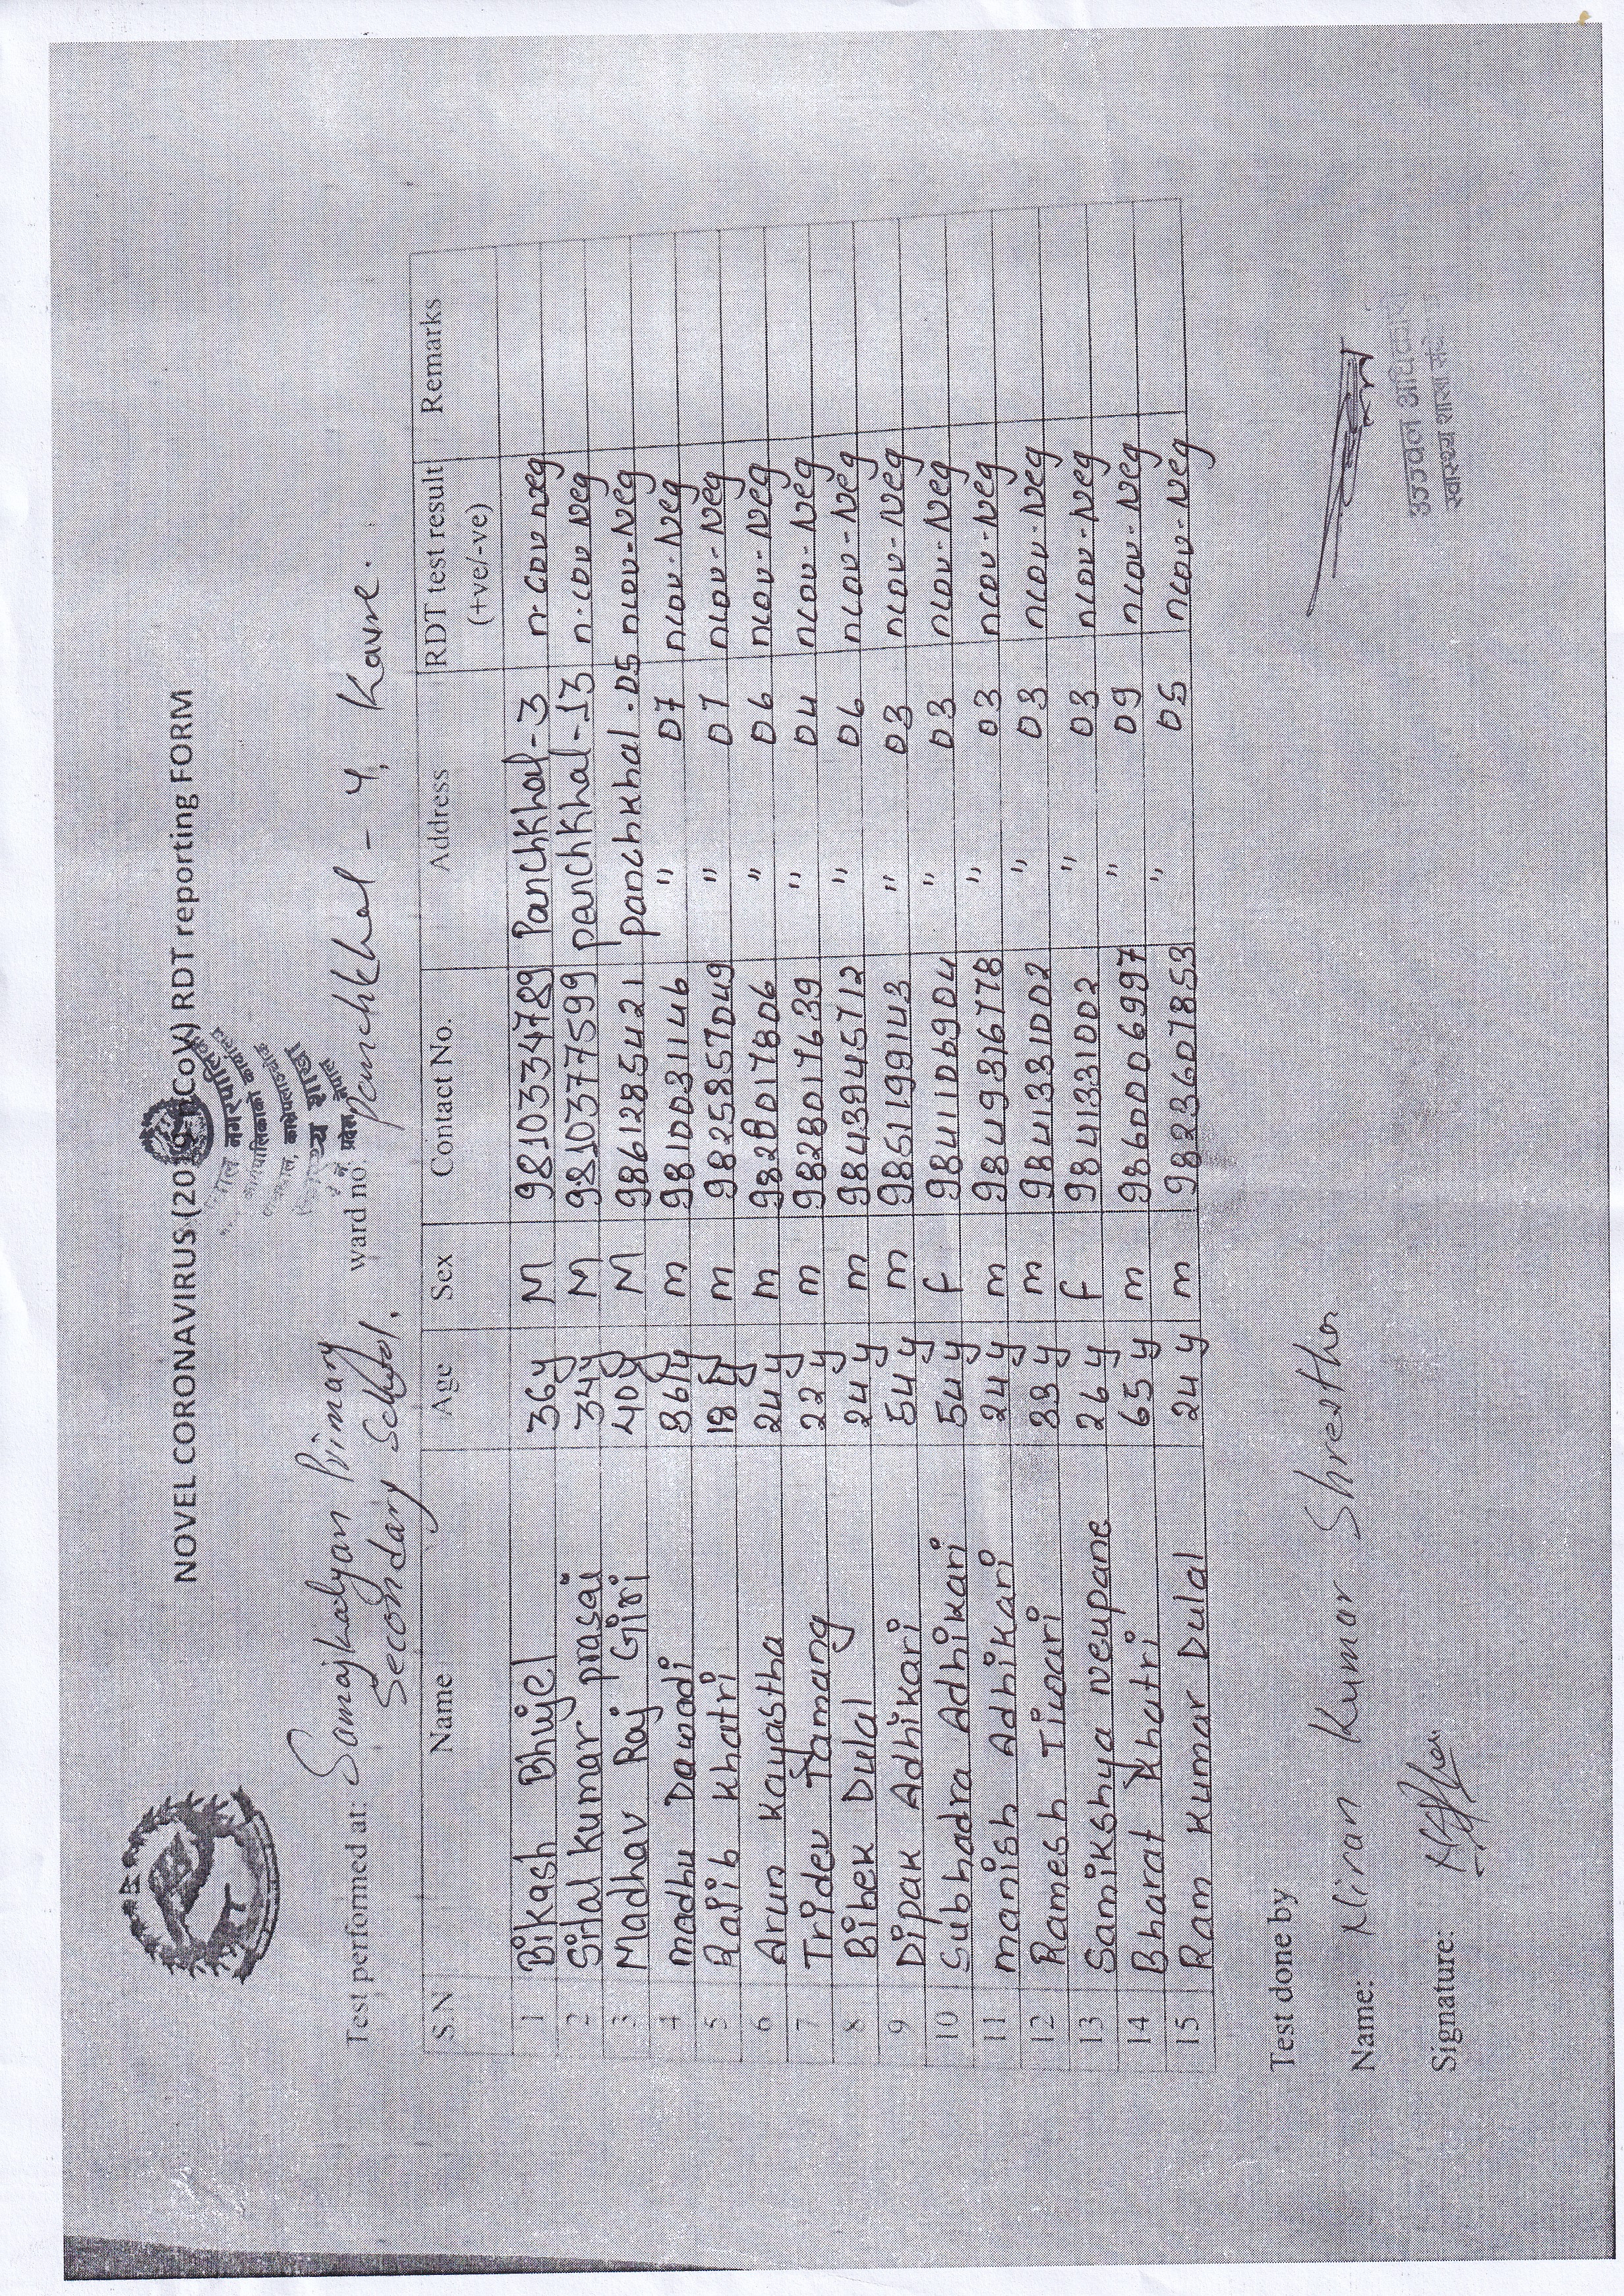 NOVEL CORONAVIRUS (2019-nCoV) RDT reporting FORM
नगरपालिका
नेपाल
Test performed at: Samajkalyan Primary ward no. Panchkhal - 4, Kavre.
Secondary School.
S.N Name Age Sex Contact No. Address RDT test result (+ve/-ve) Remarks
1 Bikash Bhujel 36y M 9810334789 Panchkhal-3 n cov neg
2 Sital kumar prasai 34y M 9810377599 panchkhal-13 n.cov Neg
3 Madhav Raj Giri 40y M 9861285421 panchkhal.05 ncov-Neg
4 madhu Dawadi 36y m 9810031146 " 07 ncov-Neg
5 Rajib khatri 18y m 9825857049 " 07 ncov-Neg
6 Arun kayastha 24y m 9828017806 " 06 ncov-Neg
7 Tridev Tamang 22y m 9828017639 " 04 ncov-Neg
8 Bibek Dulal 24y m 9843945712 " 06 ncov-Neg
9 Dipak Adhikari 54y m 9851199143 " 03 ncov-Neg
10 Subhadra Adhikari 54y f 9841106904 " 03 ncov-Neg
11 manish Adhikari 24y m 9849316778 " 03 ncov-Neg
12 Ramesh Tiwari 33y m 9841331002 " 03 ncov-Neg
13 Samikshya neupane 26y f 9841331002 " 03 ncov-Neg
14 Bharat khatri 65y m 9860006997 " 09 ncov-Neg
15 Ram kumar Dulal 24y m 9823607853 " 05 ncov-Neg
Test done by
Name: Niran Kumar Shrestha
Signature:
स्वास्थ्य शाखा